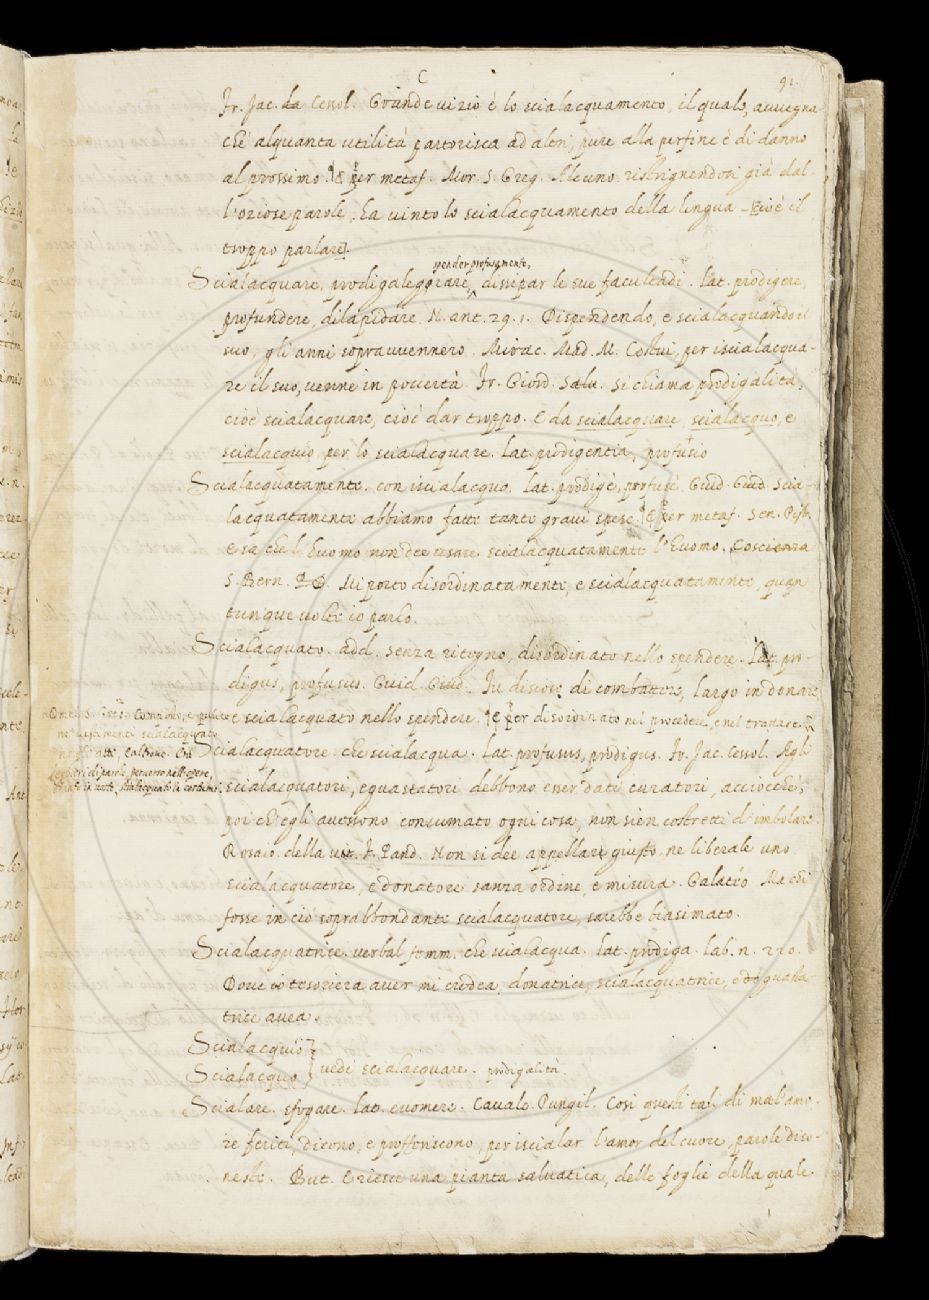 C
91.
Fr. Jac. da Cessol. Grande vizio è lo scialacquamento, il quale, avvegna
chè alquanta utilità partorisca ad altri, pure alla perfine è di danno
al prossimo. ¶ E per metaf. Mor. S. Greg. Alcuno ristrignendosi già dal-
l'oziose parole, ha vinto lo scialacquamento della lingua - [cioè il
troppo parlare].
spender profusamente,
Scialacquare, prodigaleggiare, dissipar le sue facultadi. lat. prodigere,
profundere, dilapidare. N. ant. 29. 1. Dispendendo, e scialacquando il
suo, gli anni sopravvennero. Mirac. Mad. M. Costui, per iscialacqua-
re il suo, venne in povertà. Fr. Giord. Salv. Si chiama prodigalità,
cioè scialacquare, cioè dar troppo. E da scialacquare scialacquo, e
scialacquìo, per lo scialacquare. Lat. prodigentia, profusio
Scialacquatamente. con iscialacquo. lat. prodigè, profusè. Guid. Giud. Scia-
lacquatamente abbiamo fatte tante gravi spese. ¶ E per metaf. Sen. Pist.
e sa che l'huomo non dee usare scialacquatamente l'huomo. Coscienza
S. Bern. Mi porto disordinatamente, e scialacquatamente, quan
tunque volte io parlo.
Scialacquato. add. senza ritegno, disordinato nello spendere. Lat. pro-
digus, profusus. Guid. Giud. Fu disioso di combattere, largo in donare
e scialacquato nello spendere. ¶ E per disordinato nel procedere, e nel trattare.
ne' reggimenti scialacquato
Scialacquatore che scialacqua. Lat. profusus, prodigus. Fr. Jac. Cessol. Agli
scialacquatori, e guastatori debbono esser dati curatori, acciocchè,
poi ch'egli avessono consumato ogni cosa, non sien costretti d'imbolare.
Rosaio della vit. F. Pand. Non si dee appellare giusto, ne liberale uno
scialacquatore, e donatore sanza ordine, e misura. Galateo Ma chi
fosse in ciò soprabbondante scialacquatore, sarebbe biasimato.
Scialacquatrice. verbal femm. che scialacqua. lat. prodiga. lab. n. 220.
Dove io tesoriera aver mi credea, donatrice, scialacquatrice, e guasta
trice avea.
Scialacquìo
Scialacquo } vedi scialacquare. prodigalità.
Scialare. sfogare. lat. evomere. Cavalc. Pungil. Così questi tali di mal'amo-
re feriti, dicono, e profferiscono, per iscialar l'amor del cuore, parole diso-
neste. But. E riesce una pianta salvatica, delle foglie della quale